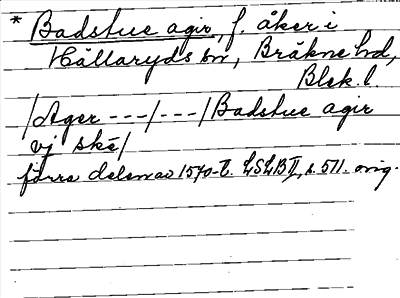 * Badstue agir, f. åker i
Hällaryds sn, Bräkne hd,
Blek. l.
/Ager ---/---/ Badstue agir
vj skē/
förra delen av 1570-t. LSLB II, s. 511. orig.